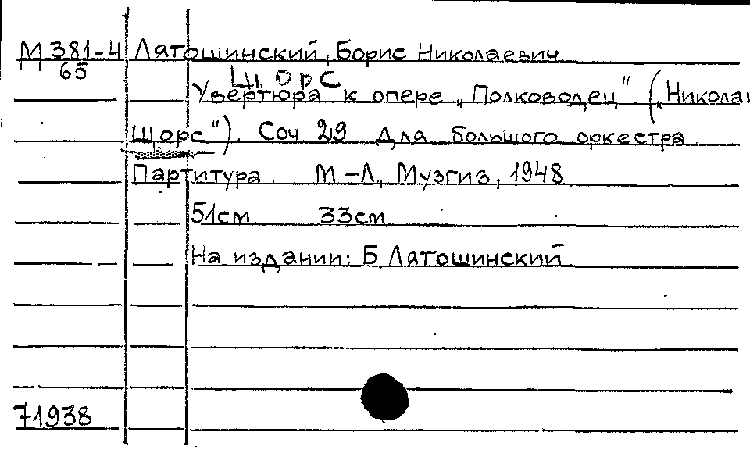 М 381-4 Лятошинский, Борис Николаевич
65
Щорс
Увертюра к опере „Полководец" („Никола
Щорс"). Соч 29 Для большого оркестра
Партитура М-Л, Музгиз, 1948
51см 33см
На издании: Б Лятошинский
71938